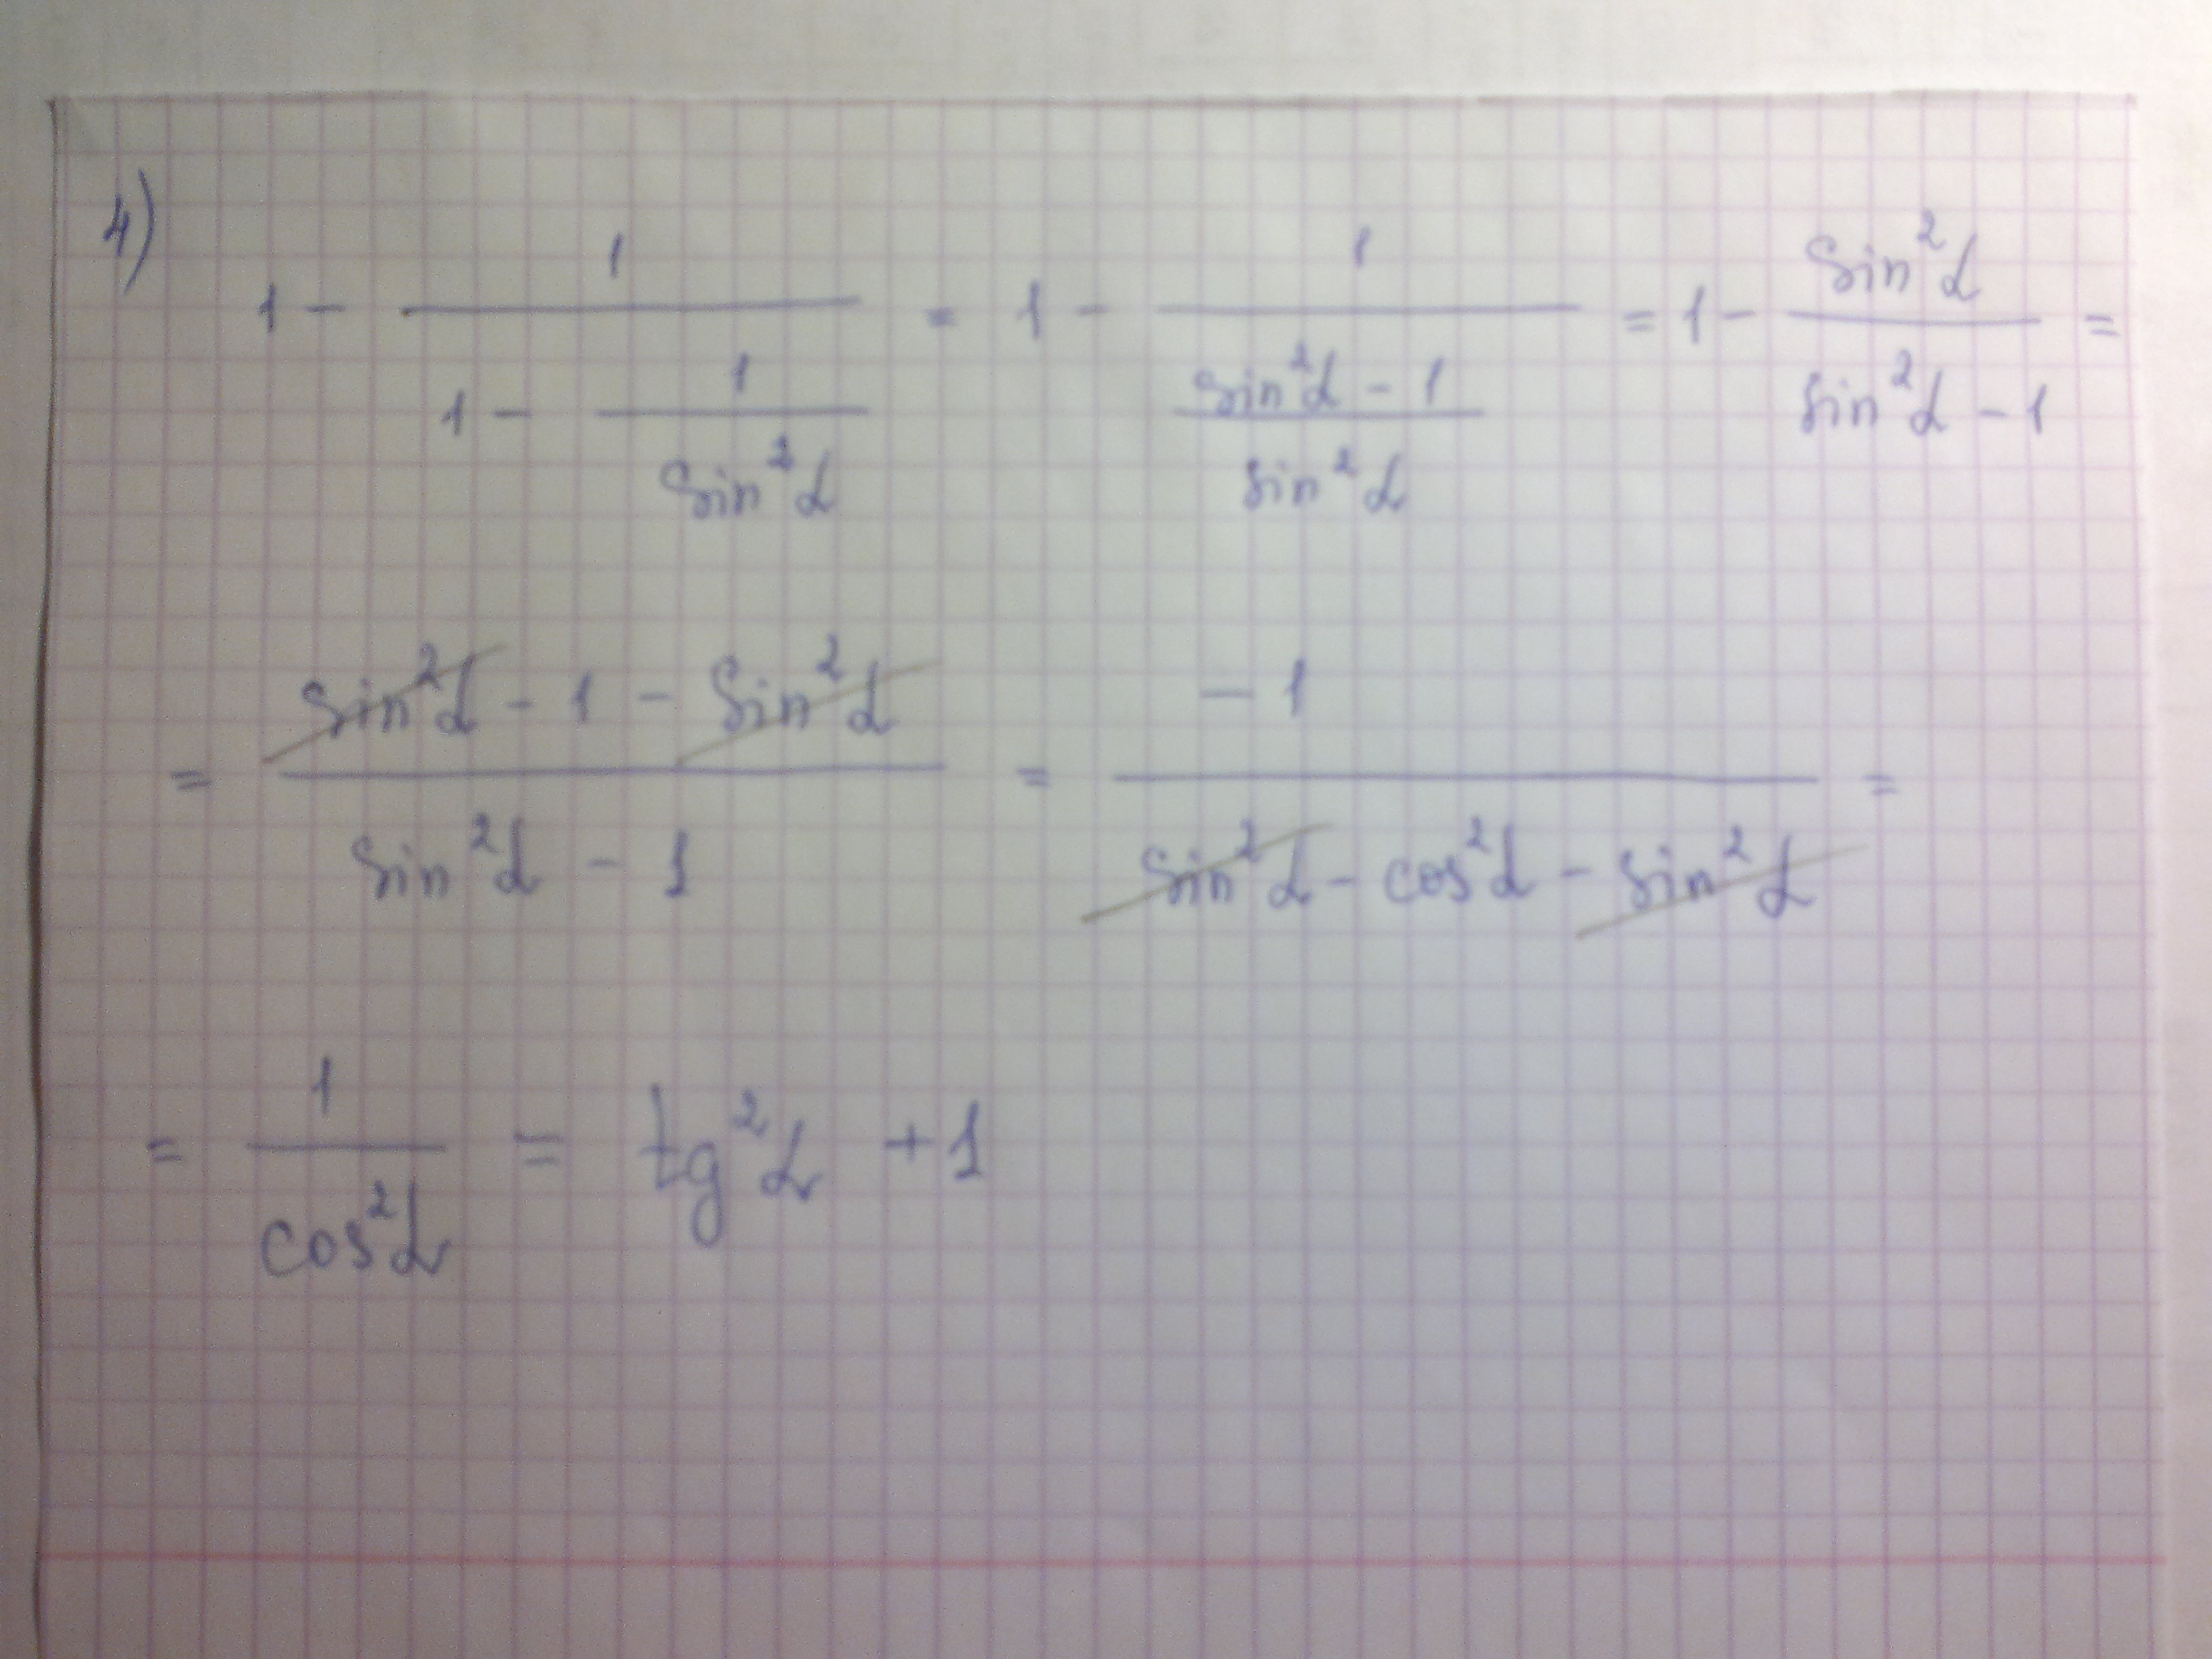 4) 1 - 1/(1 - 1/sin²α) = 1 - 1/((sin²α - 1)/sin²α) = 1 - sin²α/(sin²α - 1) =
= (sin²α - 1 - sin²α)/(sin²α - 1) = -1/(sin²α - cos²α - sin²α) =
= 1/cos²α = tg²α + 1